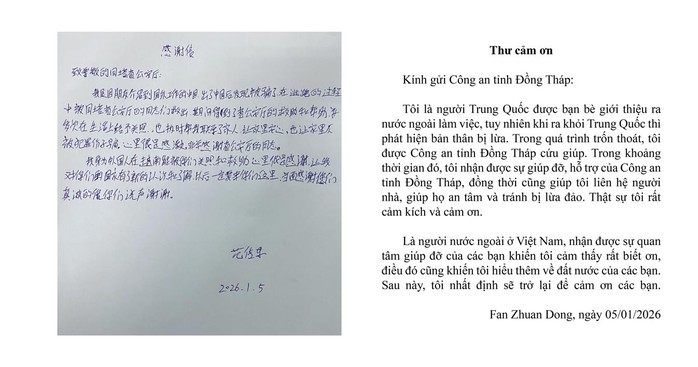 感谢信
致尊敬的同塔省公安厅:
我是因朋友介绍到国外工作的中国 出了中国后发现被骗了在逃跑的过程
中被同塔省公安厅的同志们救出 期间得到了省公安厅的救助和帮助
多次在生活上给予关照,也及时帮我联系了家人 让家里安心,也让家里
被犯罪份子 心里很是感激 非常感谢省公安厅的同志。
我身为外国人在越南能被你们关照和救助 心里很感激,让我
对你们国家有了新的认识和了解 以后一定要来你们这里 当面感谢你们
真诚的像你们说声谢谢。
2026.1.5
Thư cảm ơn
Kính gửi Công an tỉnh Đồng Tháp:
Tôi là người Trung Quốc được bạn bè giới thiệu ra
nước ngoài làm việc, tuy nhiên khi ra khỏi Trung Quốc thì
phát hiện bản thân bị lừa. Trong quá trình trốn thoát, tôi
được Công an tỉnh Đồng Tháp cứu giúp. Trong khoảng
thời gian đó, tôi nhận được sự giúp đỡ, hỗ trợ của Công an
tỉnh Đồng Tháp, đồng thời cũng giúp tôi liên hệ người
nhà, giúp họ an tâm và tránh bị lừa đảo. Thật sự tôi rất
cảm kích và cảm ơn.
Là người nước ngoài ở Việt Nam, nhận được sự quan
tâm giúp đỡ của các bạn khiến tôi cảm thấy rất biết ơn,
điều đó cũng khiến tôi hiểu thêm về đất nước của các bạn.
Sau này, tôi nhất định sẽ trở lại để cảm ơn các bạn.
Fan Zhuan Dong, ngày 05/01/2026